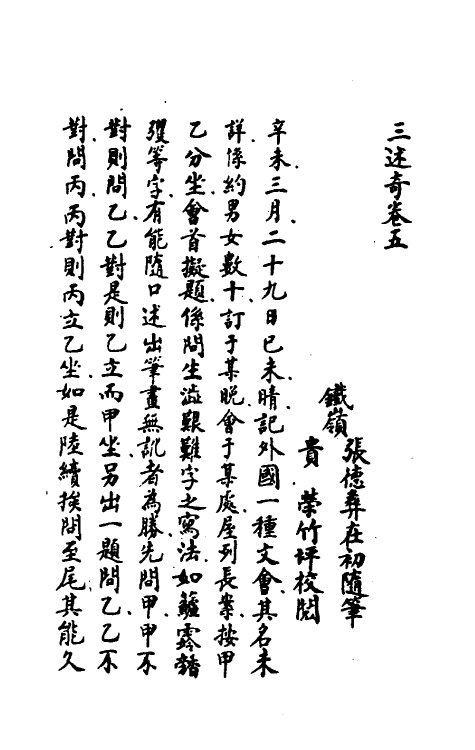 三述奇卷五
鐵嶺張德彝在初隨筆
貴榮竹坪校閱
辛未三月二十九日己未晴記外國一種文會其名未
詳係約男女數十訂于某晚會于某處屋列長案按甲
乙分坐會首擬題係問生澁艱難字之寫法如蘸雺
等字有能隨口述出筆畫無訛者為勝先問甲甲不
對則問乙乙對是則乙立而甲坐另出一題問乙乙不
對問丙丙對則丙立乙坐如是陸續挨問至尾其能久